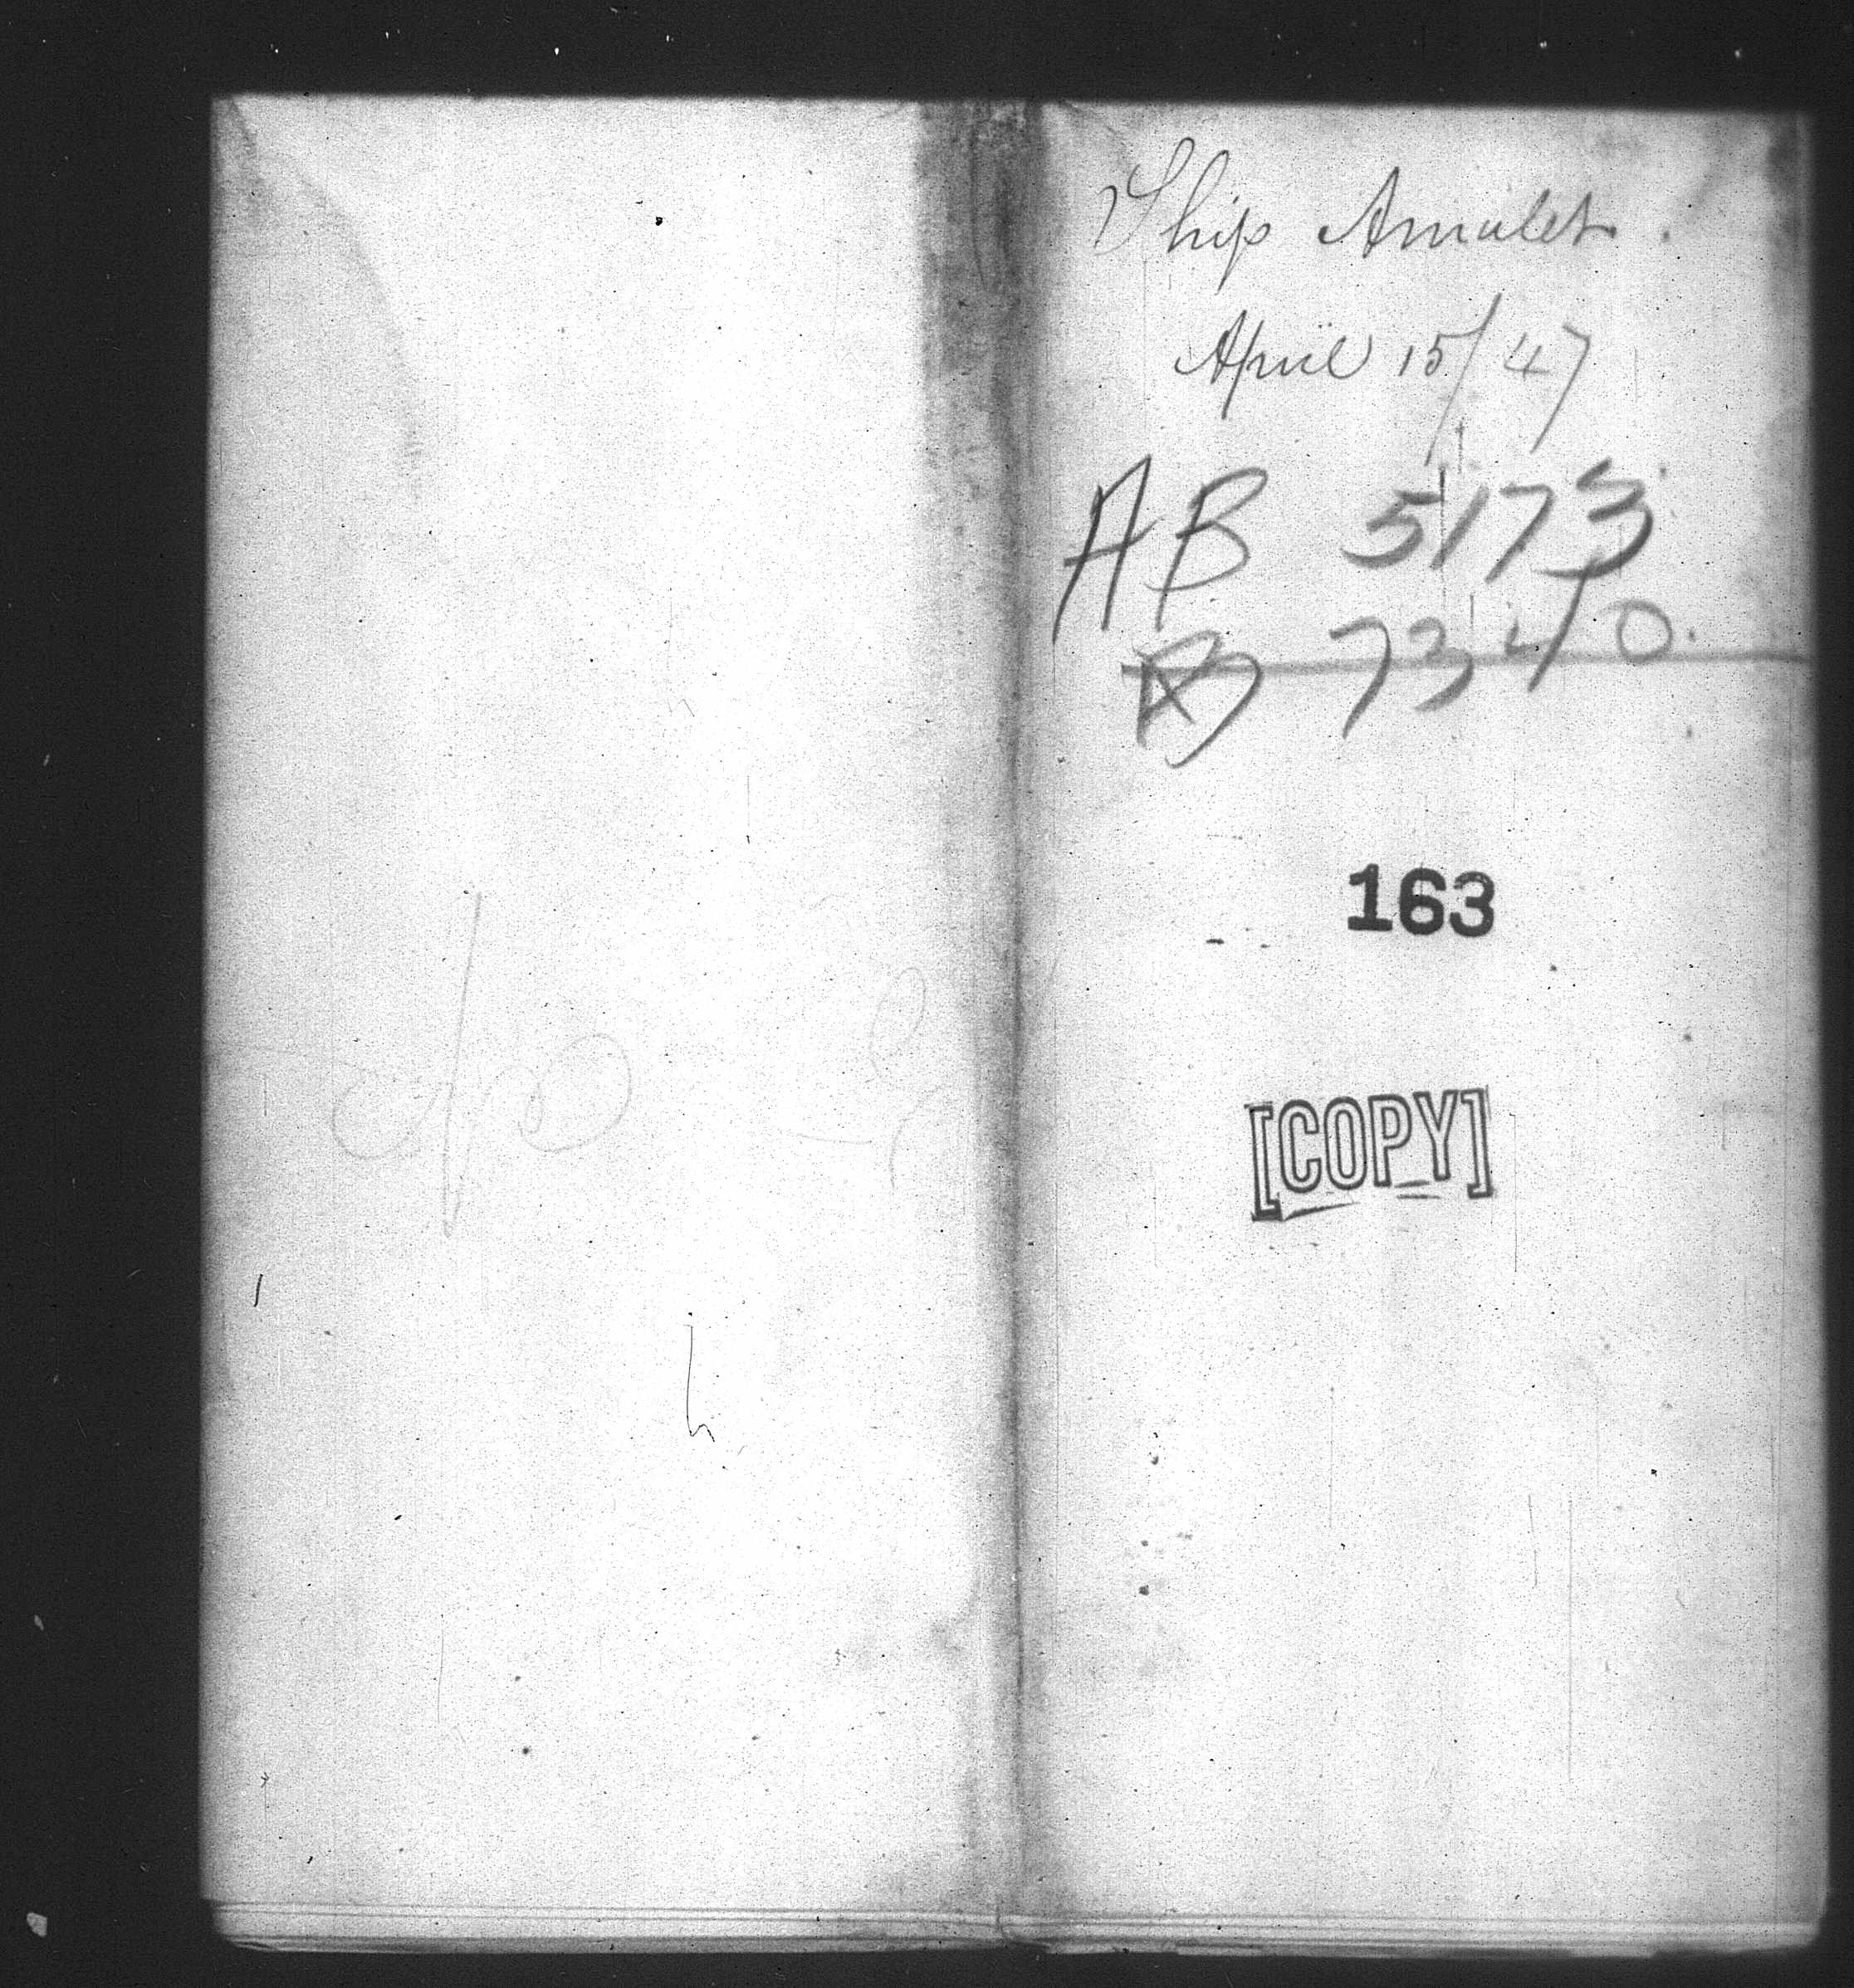 Ship Amulet.
April 15/47
AB 5173
B 7340.
163
[COPY]